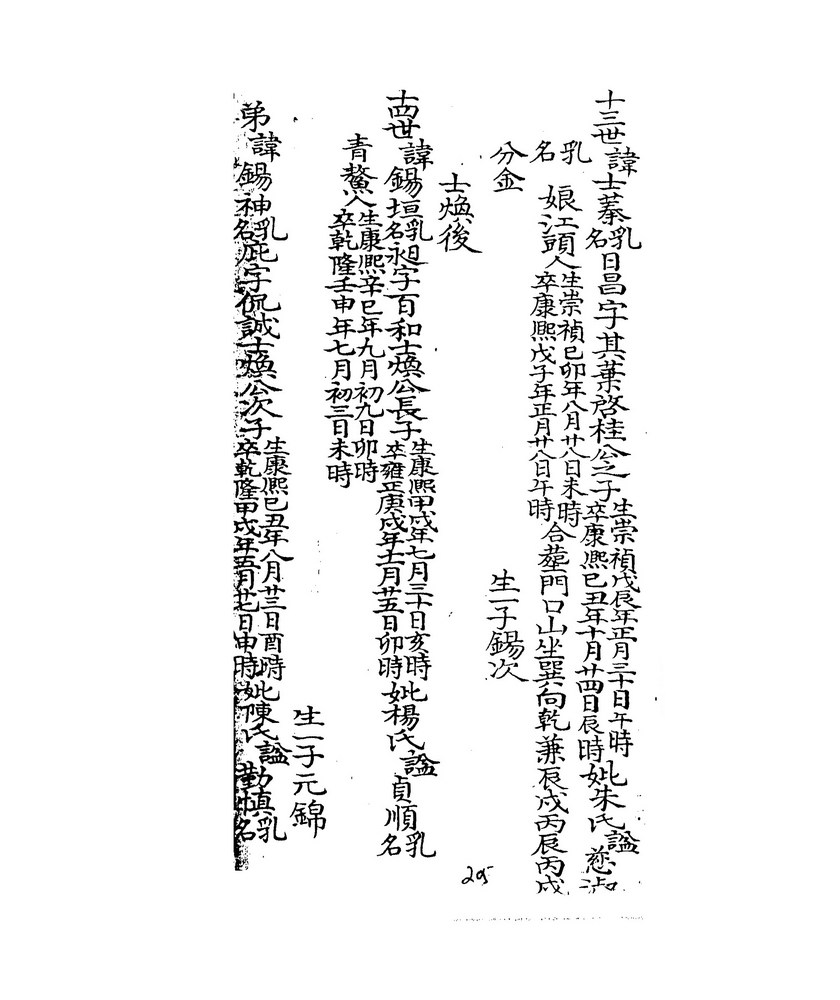 十三世諱士蓁乳名日昌字其葉啓桂公之子生崇禎戊辰年正月三十日午時卒康熙己丑年十月廿四日辰時妣朱氏諡慈淑
乳名娘江頭人生崇禎己卯年八月廿八日未時卒康熙戊子年正月廿八日午時合塟門口山坐巽向乾兼辰戌丙辰丙戌
分金
生一子錫次
士煥後
十四世諱錫垣乳名昶字百和士煥公長子生康熙甲戌年七月三十日亥時卒雍正庚戌年十一月廿五日卯時妣楊氏諡貞順乳名
青鰲人生康熙辛巳年九月初九日卯時卒乾隆壬申年七月初三日未時
生一子元錦
弟諱錫神乳名庇字侃誠士煥公次子生康熙己丑年八月廿三日酉時卒乾隆甲戌年五月廿七日申時妣陳氏諡勤慎乳名
205